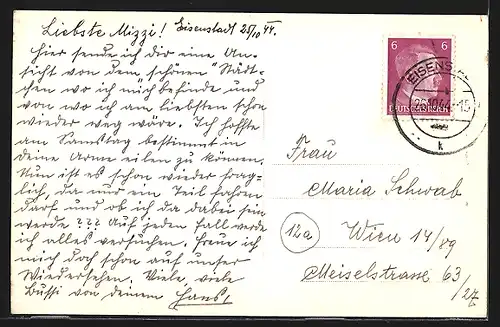 Liebste Mizzi! Eisenstadt 25/10 44.
Hier sende ich dir eine An-
sicht von dem „schönen" Städt-
chen wo ich mich befinde und
von wo ich am liebsten schon
wieder weg wäre. Ich hoffte
am Samstag bestimmt in
deine Arme eilen zu können.
Nun ist es schon wieder frag-
lich, da nur ein Teil fahren
darf und ob ich da dabei sein
werde ??? Auf jeden Fall werde
ich alles versuchen. Freue ich
mich doch schon auf unser
Wiedersehen. Viele, viele
Bussi von deinem Hans,
6 6
DEUTSCHES REICH
EISENS
10.44 - 15
k
Frau
Maria Schwab
12a
Wien 14/89
Meiselstrasse 63
/27